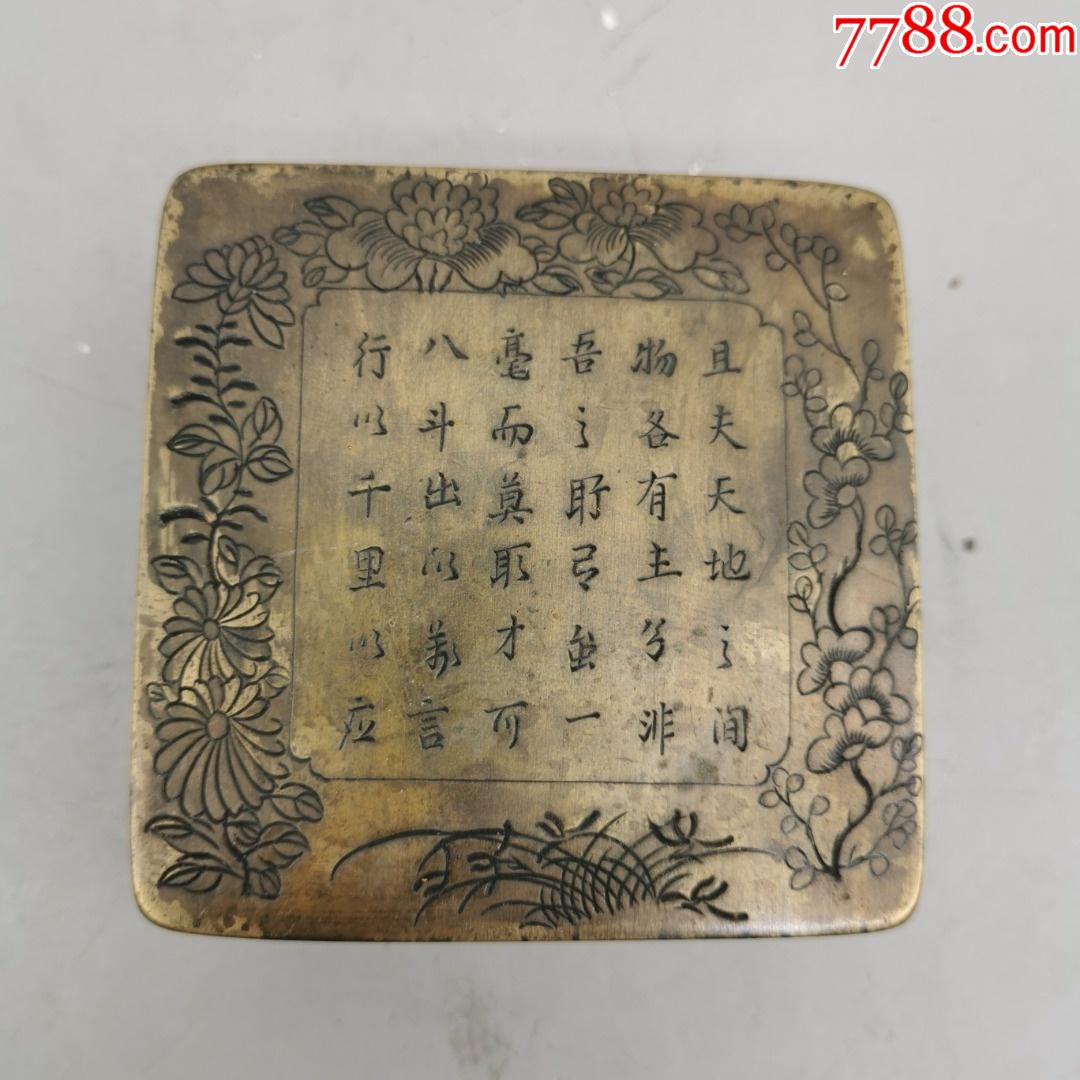 7788.com
且夫天地之間
物各有主苟非
吾之所有雖一
毫而莫取才可
八斗出以萬言
行以千里以應